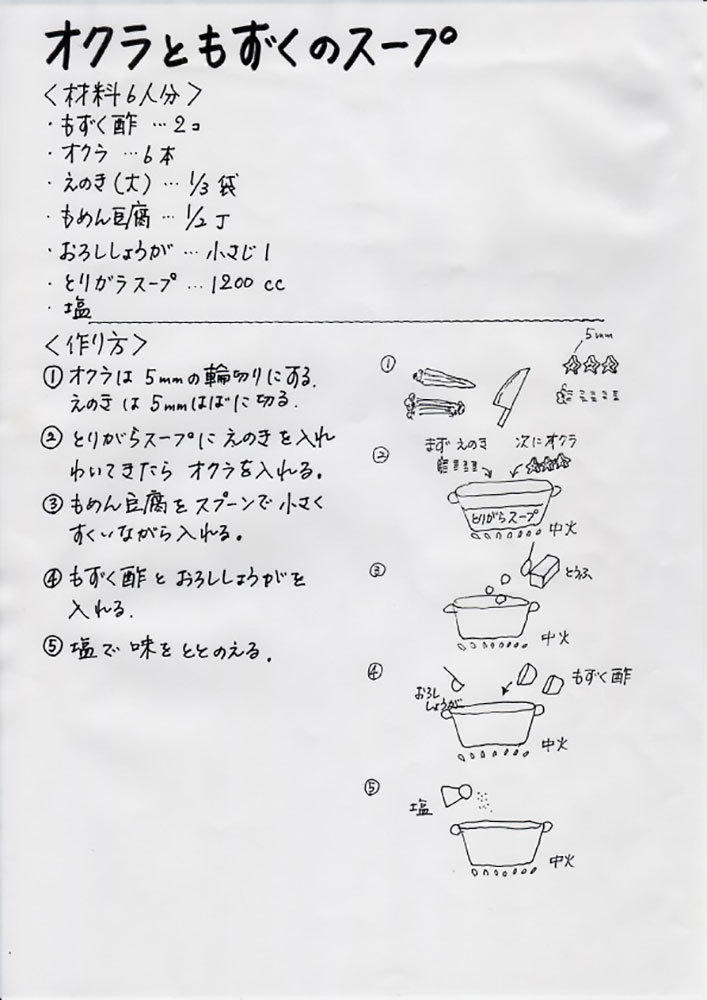 オクラともずくのスープ
〈材料6人分〉
・もずく酢 … 2コ
・オクラ … 6本
・えのき(大) … 1/3袋
・もめん豆腐 … 1/2丁
・おろししょうが … 小さじ1
・とりがらスープ … 1200cc
・塩
〈作り方〉
① オクラは 5mmの輪切りにする.
えのきは 5mmはばに切る.
② とりがらスープに えのきを入れ
わいてきたら オクラを入れる。
③ もめん豆腐をスプーンで小さく
すくいながら入れる。
④ もずく酢と おろししょうがを
入れる.
⑤ 塩で 味を ととのえる.
①
5mm
②
まず えのき
次にオクラ
とりがらスープ
中火
③
とうふ
中火
④
おろし
しょうが
もずく酢
中火
⑤
塩
中火